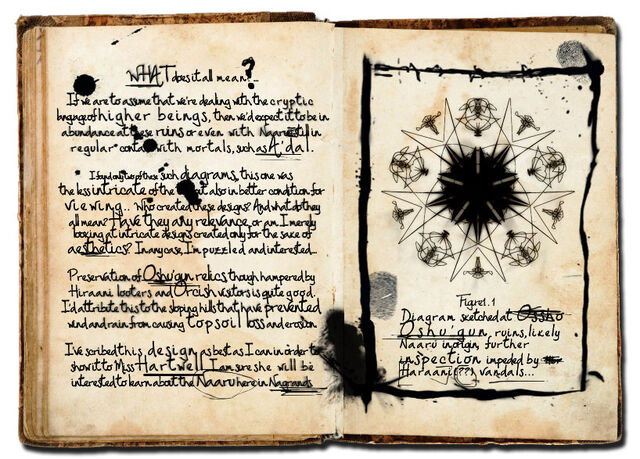 WHAT does it all mean?...
If we are to assume that we're dealing with the cryptic
language of higher beings, then we'd expect it to be in
abundance at these ruins or even with Naaru still in
regular contact with mortals, such as A'dal.
I found only two of these such diagrams, this one was
the less intricate of the but also in better condition for
viewing... Who created these designs? And what do they
all mean? Have they any relevance, or am I merely
looking at intricate designs created only for the sake of
aesthetics? In any case, I'm puzzled and interested...
Preservation of Oshu'gun relics though hampered by
Hiraani looters and Orcish visitors is quite good.
I'd attribute this to the sloping hills that have prevented
wind and rain from causing topsoil loss and erosion.
I've scribed this design as best as I can in order to
show it to Miss Hartwell. I am sure she will be
interested to learn about the Naaru here in Nagrand.
Figure1.1
Diagram sketched at Ossho
Oshu'gun, ruins, likely
Naaru in origin, further
inspection impeded by
Haraani(??) vandals...